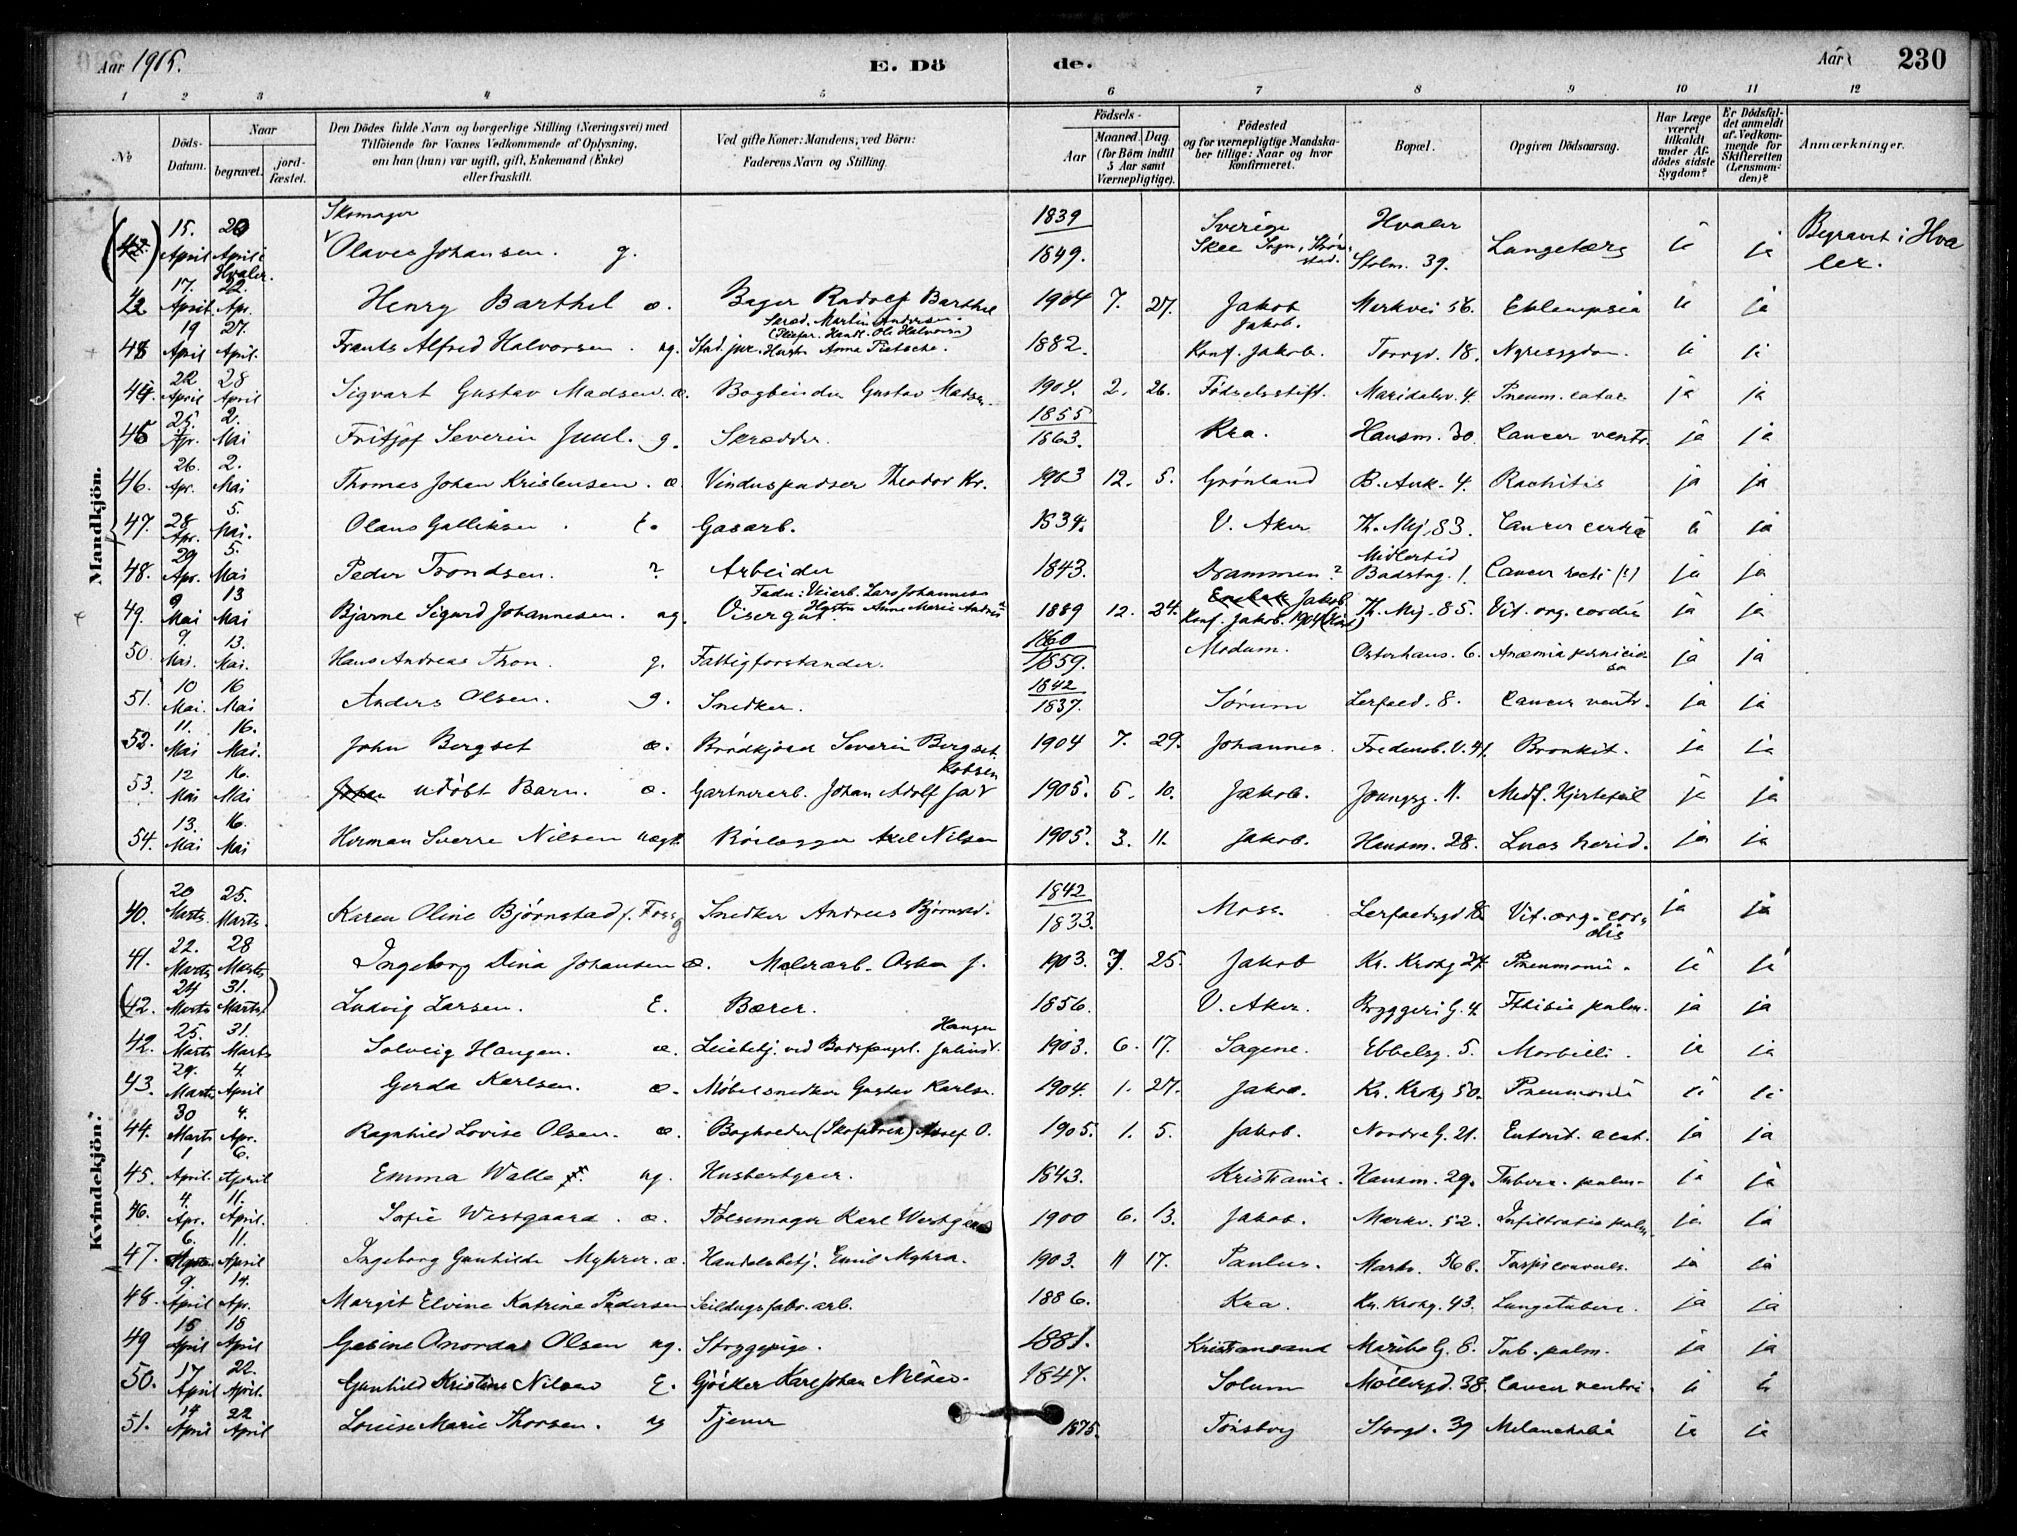 Aar 1905. E. Döde. Aar 230
1 2 3 4 5 6 7 8 9 10 11 12
№
Döds-Datum.
Naar
begravet.
jordfæstet.
Den Dödes fulde Navn og borgerlige Stilling (Næringsvei) med
Tilföiende for Voxnes Vedkommende af Oplysning,
om han (hun) var ugift, gift, Enkemand (Enke)
eller fraskilt.
Ved gifte Koner: Mandens, ved Börn:
Faderens Navn og Stilling.
Födsels-
Aar
Maaned. Dag.
(for Börn indtil
5 Aar samt
Værnepligtige).
Födested
og for værnepligtige Mandskaber tillige: Naar og hvor
konfirmeret.
Bopæl.
Opgiven Dödsaarsag.
Har Læge
været
tilkaldt
under Afdödes sidste
Sygdom?
Er Dödsfaldet anmeldt
af Vedkommende for
Skifteretten
(Lensmanden)?
Anmærkninger.
Mandkjön.
Skomager 1839 Sverige Hvaler
15. April 20 April i Hvaler. Olaves Johansen. g. 1849. Skee Sogn, Strömstad. Storm. 39. ja Begravet i Hvaler.
17. April 22. Apr. Henry Barthel æ. Bager Rudolf Barthel 1904 7. 27. Jakob Markvei 56. Eklampsia ja ja
19 April 27. April. Frants Alfred Halvorsen. ug. Stud. jur. 1882. Jakob. Konf. Jakob. Torvgd. 18. Nyresygdom. ja ja
44. 22 April 28 April Sigvart Gustav Madsen. æ. Bogbinder Gustav Madsen. 1904. 2. 26. Födselsstift. Maridalsv. 4. Pneum. catar ja ja
45 25. Apr. 2. Mai Fritjof Severin Juul. g. Skrædder. 1855 1863. Kra. Hausm. 30. Cancer ventr. ja ja
46. 26. Apr. 2. Mai Thomas Johan Kristensen. æ Vinduspudser Theodor Kr. 1903 12. 5. Grönland B. Ank. 4. Rachitis ja ja
47. 28 Apr. 5. Mai. Olaus Gulliksen. E. Gasarb. 1834. V. Aker Th. Mej. 83. Cancer ja ja
48. 29 Apr. 5. Mai Peder Trondsen. ? Arbeider 1843. Drammen? Midlertid Badstug. 1. Cancer recti (?) ja ja
49. 9 Mai 13 Mai Bjarne Sigurd Johannesen. ug. Visergut. Fader: Veiarb. Lars Johannes 1889 12. 24. Jakob Konf. Jakob. 1904 Th. Mej. 85. Vit. org. cordis ja ja
50. 9. Mai. 13. Mai. Hans Andreas Thon. g. Fattigforstander. 1860 1859. Modum. Osterhaus. 6. Anæmia perniciosa ja ja
51. 10 Mai. 16 Mai Anders Olsen. g. Snedker. 1842 1837. Sörum Lerfoed. 8. Cancer ventr. ja ja
52. 11. Mai 16. Mai. John Bergset æ. Brödkjörer Severin Bergset. 1904 7. 29. Johannes. Fredensb. V. 41. Bronkit. ja ja
53. 12 Mai 16. Mai Johan udöbt Barn. æ. Gartnerarb. Johan Adolf Jakobsen 1905. 5. 10. Jakob. Youngsg. 11. Medf. Hjertefeil ja ja
54. 13. Mai 16. Mai Herman Sverre Nilsen uægt. Rörlægger Axel Nilsen 1905. 3. 11. Jakob. Hausm. 28. Lues hered. ja ja
Kvindekjön.
40. 20 Marts. 25. Marts. Karen Oline Björnstad f. Foss g Snedker Andreas Björnstad. 1842 1833. Moss. Lerfoedgd 8. Vit. org. cordis ja ja
41. 22. Marts 28 Marts Ingeborg Dina Johansen æ. Malerarb. Oskar J. 1903. 7. 25. Jakob Kr. Krohg 27. Pneumonia. ja ja
(42. 24 Marts 31. Marts) Ludvig Larsen. E. Bærer. 1856. V. Aker. Bryggeri G. 4. Fthisis pulm. ja ja
42. 25. Marts 31. Marts Solveig Haugen. æ. Leiebetj. ved Bodsfængsl. Julius Haugen 1903. 6. 17. Sagene. Ebbelsg. 5. Morbilli. ja ja
43. 29. Marts 4. April Gerda Karlsen. æ. Möbelsnedker Gustav Karlsen. 1904. 1. 27. Jakob. Kr. Krohg 50. Pneumonia ja ja
44. 30 Marts 4. Apr. Ragnhild Lovise Olsen. æ. Bogholder (Skofabrik) O. 1905. 1. 5. Jakob. Nordre G. 21. Enterit. acut. ja ja
45. 1 April. 6. April Emma Walle. ug. Husbestyrer. 1843. Kristiania. Hausm. 29. Tuberc. pulm. ja ja
46. 4. Apr. 11. April. Sofie Westgaard. æ. Pölsemager Karl Westgaard 1900 6. 13. Jakob. Markv. 52. Infiltratio pulm. ja ja
47. 6. April 11. April Ingeborg Gunhilde Myhrer. æ. Handelsbetj. Emil Myhra. 1903. 11 17. Paulus. Markv. 56 b. ja ja
48. 9. April 14. Apr. Margit Elvine Katrine Pedersen Seildugsfabr. arb. 1886. Kra. Kr. Krohg. 43. Lungetuberc. ja ja
49 15 April 18 April Gesine Olsen ug. Strygepige. 1881. Kristiansand Maribo G. 6. Tub. pulm. ja ja
50. 17 April 22. April. Gunhild Kristine Nilsen E. Gjörtler Karl Johan Nilsen. 1847. Solum Möllergd. 38. Cancer ventri. ja ja
51. 14 April 22 April Louise Marie Thorsen. ug Tjener 1875. Tönsberg Storgd. 39 Melancholia ja ja